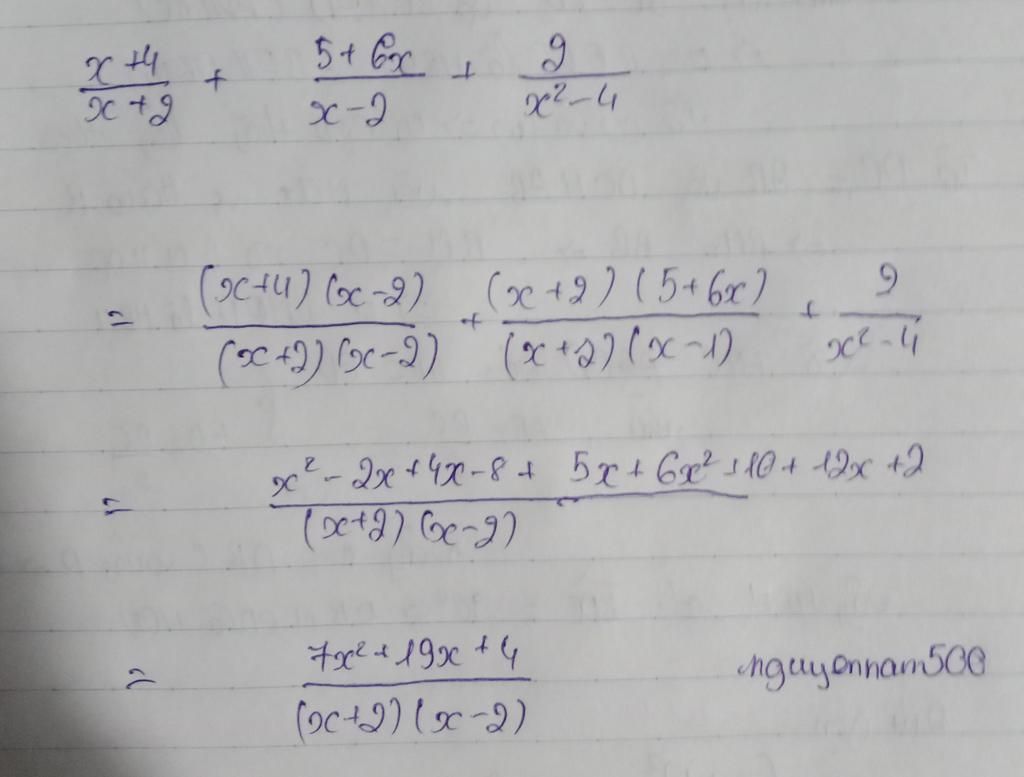 \frac{x+4}{x+2} + \frac{5+6x}{x-2} + \frac{2}{x^2-4}
= \frac{(x+4)(x-2)}{(x+2)(x-2)} + \frac{(x+2)(5+6x)}{(x+2)(x-1)} + \frac{2}{x^2-4}
= \frac{x^2-2x+4x-8+5x+6x^2+10+12x+2}{(x+2)(x-2)}
= \frac{7x^2+19x+4}{(x+2)(x-2)}
nguyennam500